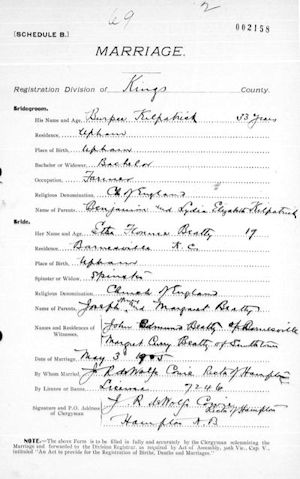 69 2
002158
[SCHEDULE B.]
MARRIAGE.
Registration Division of Kings County.
Bridegroom.
His Name and Age, Burpee Kilpatrick 33 years
Residence, Upham
Place of Birth, Upham
Bachelor or Widower, Bachelor
Occupation, Farmer
Religious Denomination, Ch of England
Name of Parents, Benjamin and Lydia Elizabeth Kilpatrick
Bride.
Her Name and Age, Florence Beatty 19
Residence, Barnesville K. C.
Place of Birth, Upham
Spinster or Widow, Spinster
Religious Denomination, Church of England
Name of Parents, Joseph and Margaret Beatty
Names and Residences of Witnesses, John Edmund Beatty of Barnesville
Margret Beatty of
Date of Marriage, May 3d 1905
By Whom Married, J. R. deWolfe Cowie Rector of Hampton
By License or Banns, License 7246
Signature and P.O. Address of Clergyman J. R. deWolfe Cowie
Rector of Hampton
Hampton N.B.
NOTE.—The above Form is to be filled in fully and accurately by the Clergyman solemnizing the
Marriage and forwarded to the Division Registrar, as required by Act of Assembly, 50th Vic., Cap. V.,
intituled "An Act to provide for the Registration of Births, Deaths and Marriages."